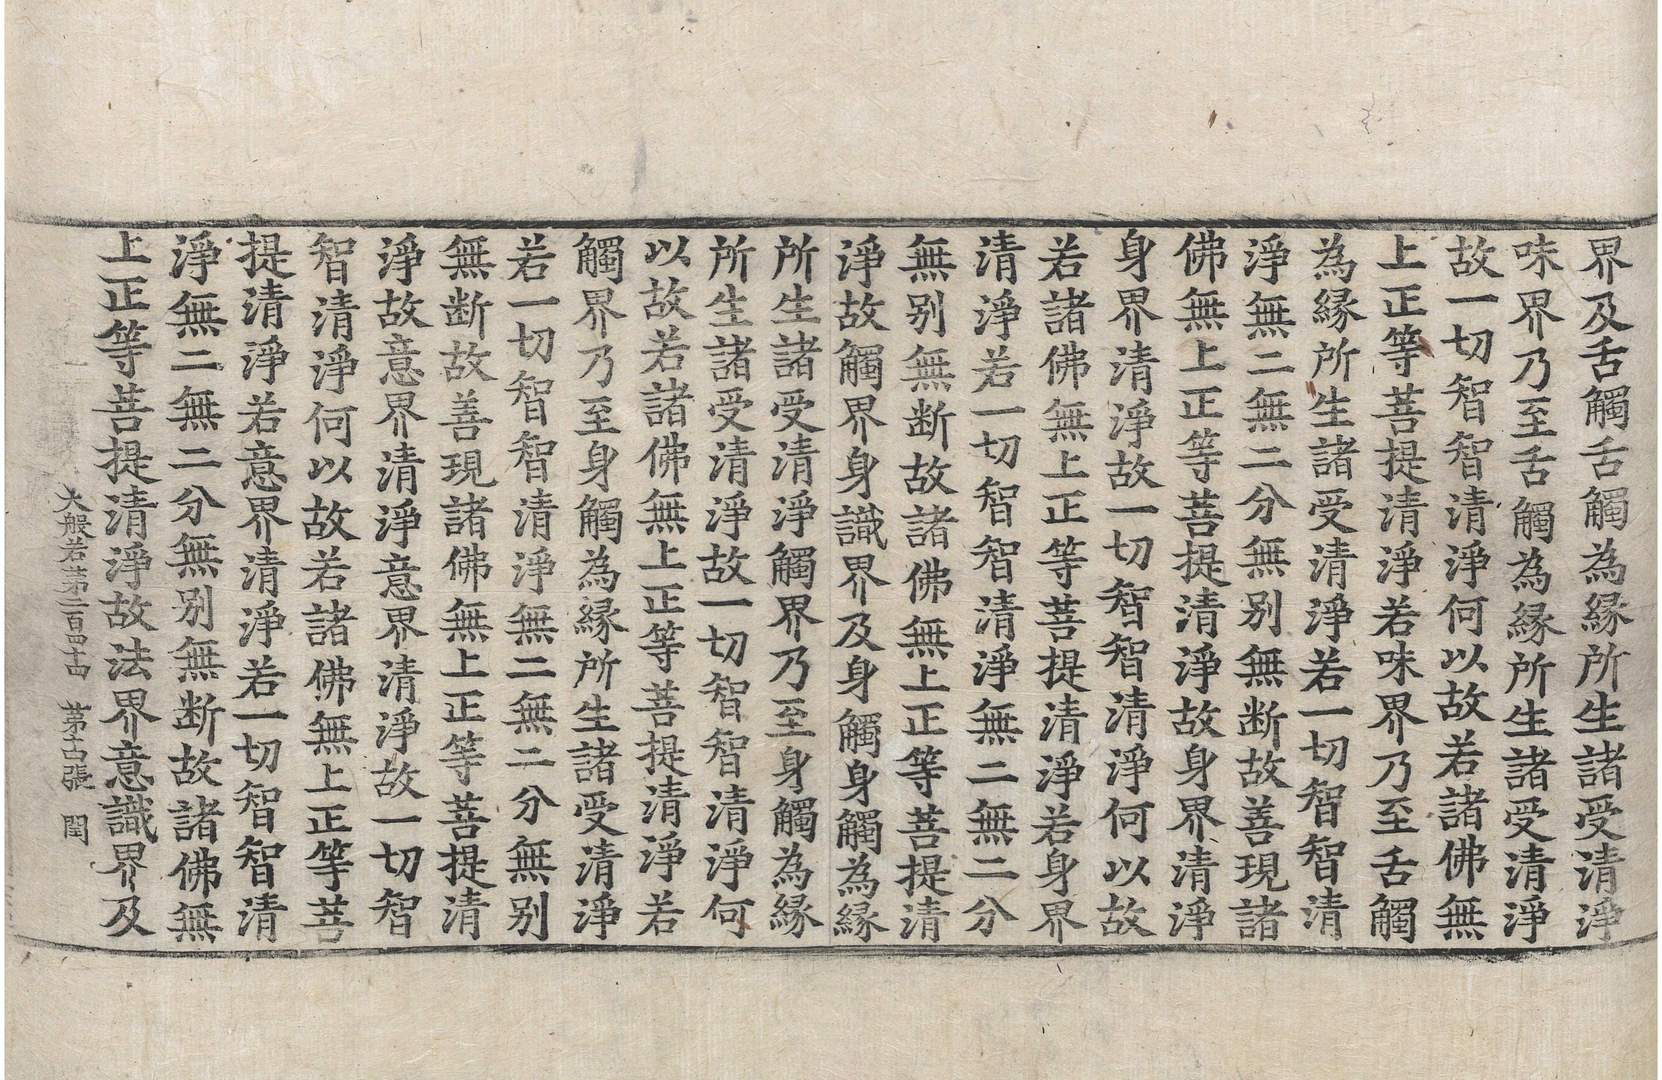 界及舌觸舌觸為緣所生諸受清淨
味界乃至舌觸為緣所生諸受清淨
故一切智智清淨何以故若諸佛無
上正等菩提清淨若味界乃至舌觸
為緣所生諸受清淨若一切智智清
淨無二無二分無别無断故善現諸
佛無上正等菩提清淨故身界清淨
身界清淨故一切智智清淨何以故
若諸佛無上正等菩提清淨若身界
清淨若一切智智清淨無二無二分
無别無断故諸佛無上正等菩提清
淨故觸界身識界及身觸身觸為緣
所生諸受清淨觸界乃至身觸為緣
所生諸受清淨故一切智智清淨何
以故若諸佛無上正等菩提清淨若
觸界乃至身觸為緣所生諸受清淨
若一切智智清淨無二無二分無别
無断故善現諸佛無上正等菩提清
淨故意界清淨意界清淨故一切智
智清淨何以故若諸佛無上正等菩
提清淨若意界清淨若一切智智清
淨無二無二分無别無断故諸佛無
上正等菩提清淨故法界意識界及
大般若第二百四十 第十張 閏